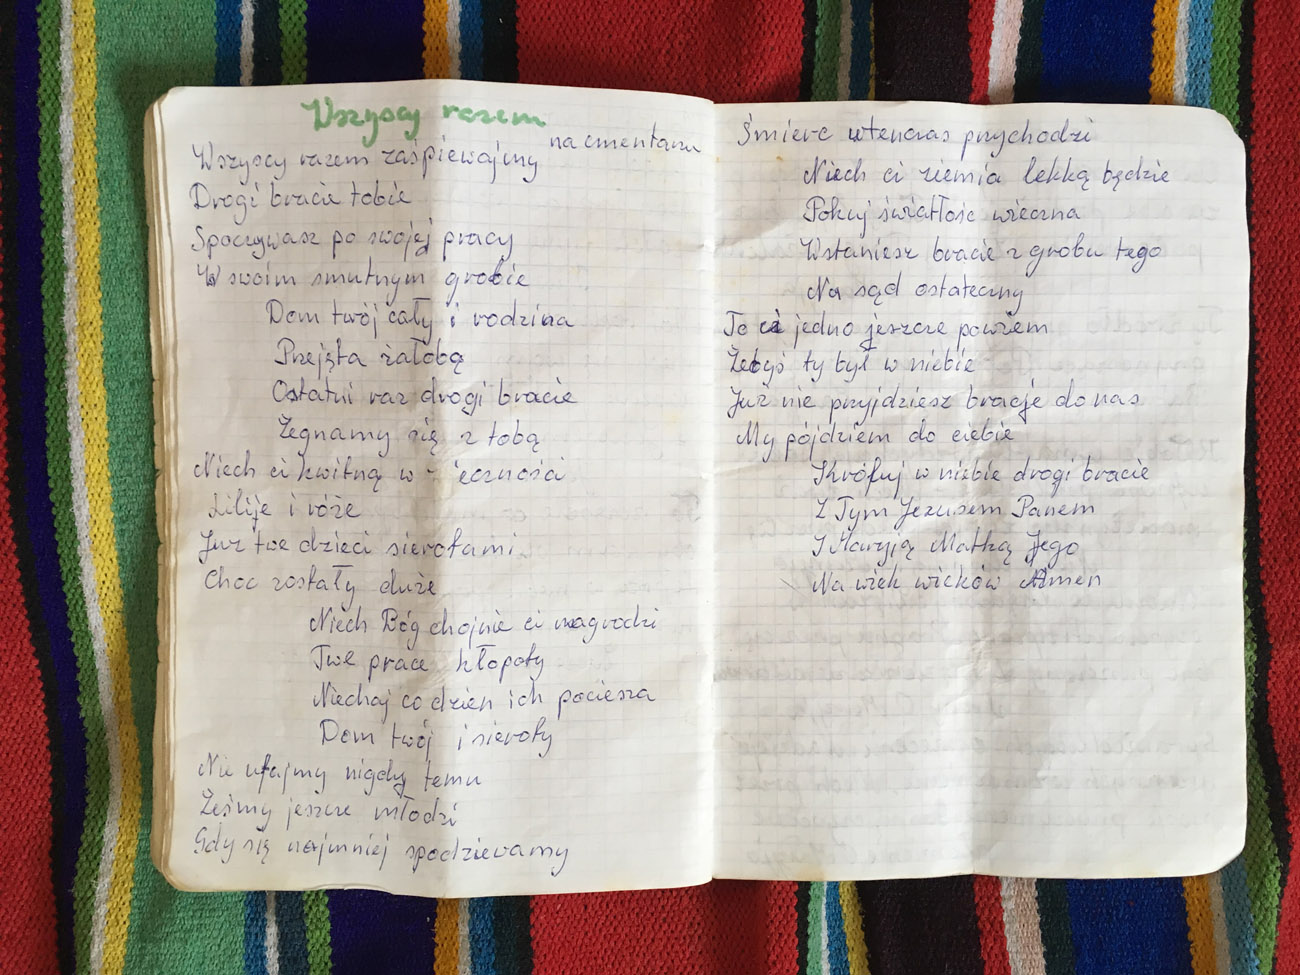 Wszyscy razem
na cmentarzu
Wszyscy razem zaśpiewajmy
Drogi bracie tobie
Spoczywasz po swojej pracy
W swoim smutnym grobie
Dom twój cały i rodzina
Przejęta żałobą
Ostatni raz drogi bracie
Żegnamy się z tobą
Niech ci kwitną w - ieczności
Lilije i róże
Już twe dzieci sierotami
Choc zostały duże
Niech Bóg chojnie ci nagrodzi
Twe prace kłopoty
Niechaj co dzien ich pociesza
Dom twój i sieroty
Nie ufajmy nigdy temu
Żeśmy jeszcze młodzi
Gdy się najmniej spodziewamy
Śmierc wtenczas przychodzi
Niech ci ziemia lekką będzie
Pokuj światłośc wieczna
Wstaniesz bracie z grobu tego
Na sąd ostateczny
To ci jedno jeszcze powiem
Żebyś ty był w niebie
Już nie przyjdziesz bracie do nas
My pójdziem do ciebie
Króluj w niebie drogi bracie
Z Tym Jezusem Panem
I Maryją Matką Jego
Na wiek wieków Amen